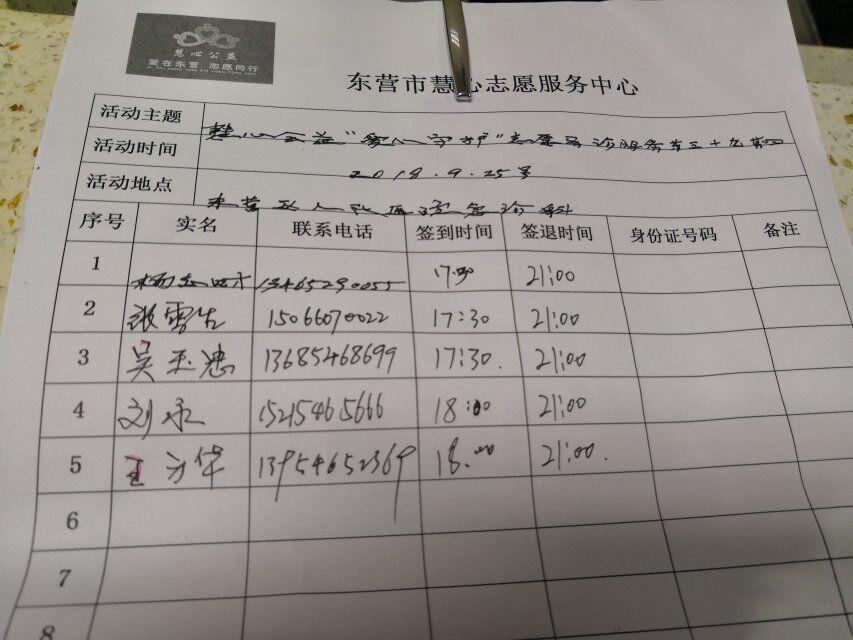 慧心公益
爱在东营 志愿同行
东营市慧心志愿服务中心
活动主题 慧心公益“爱心守护”志愿导诊服务第三十九期
活动时间 2019.9.25号
活动地点 东营区人民医院急诊科
序号 实名 联系电话 签到时间 签退时间 身份证号码 备注
1 杨 13465290055 17:30 21:00
2 张雪 15066070022 17:30 21:00
3 吴玉忠 13685468699 17:30. 21:00
4 刘永 15215465666 18:00 21:00
5 王方华 13954652369 18:00 21:00.
6
7
8